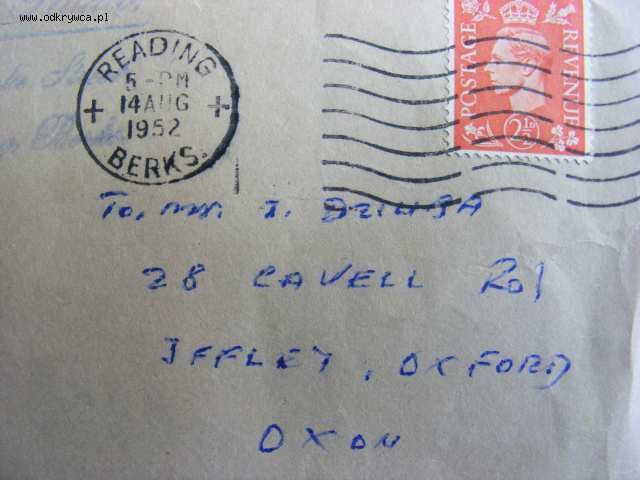 www.odkrywca.pl
READING
5-PM
14 AUG
1952
BERKS.
POSTAGE REVENUE
2½D
To, Mr. I.
28 CAVELL Rd
IFFLEY, OXFORD
OXON